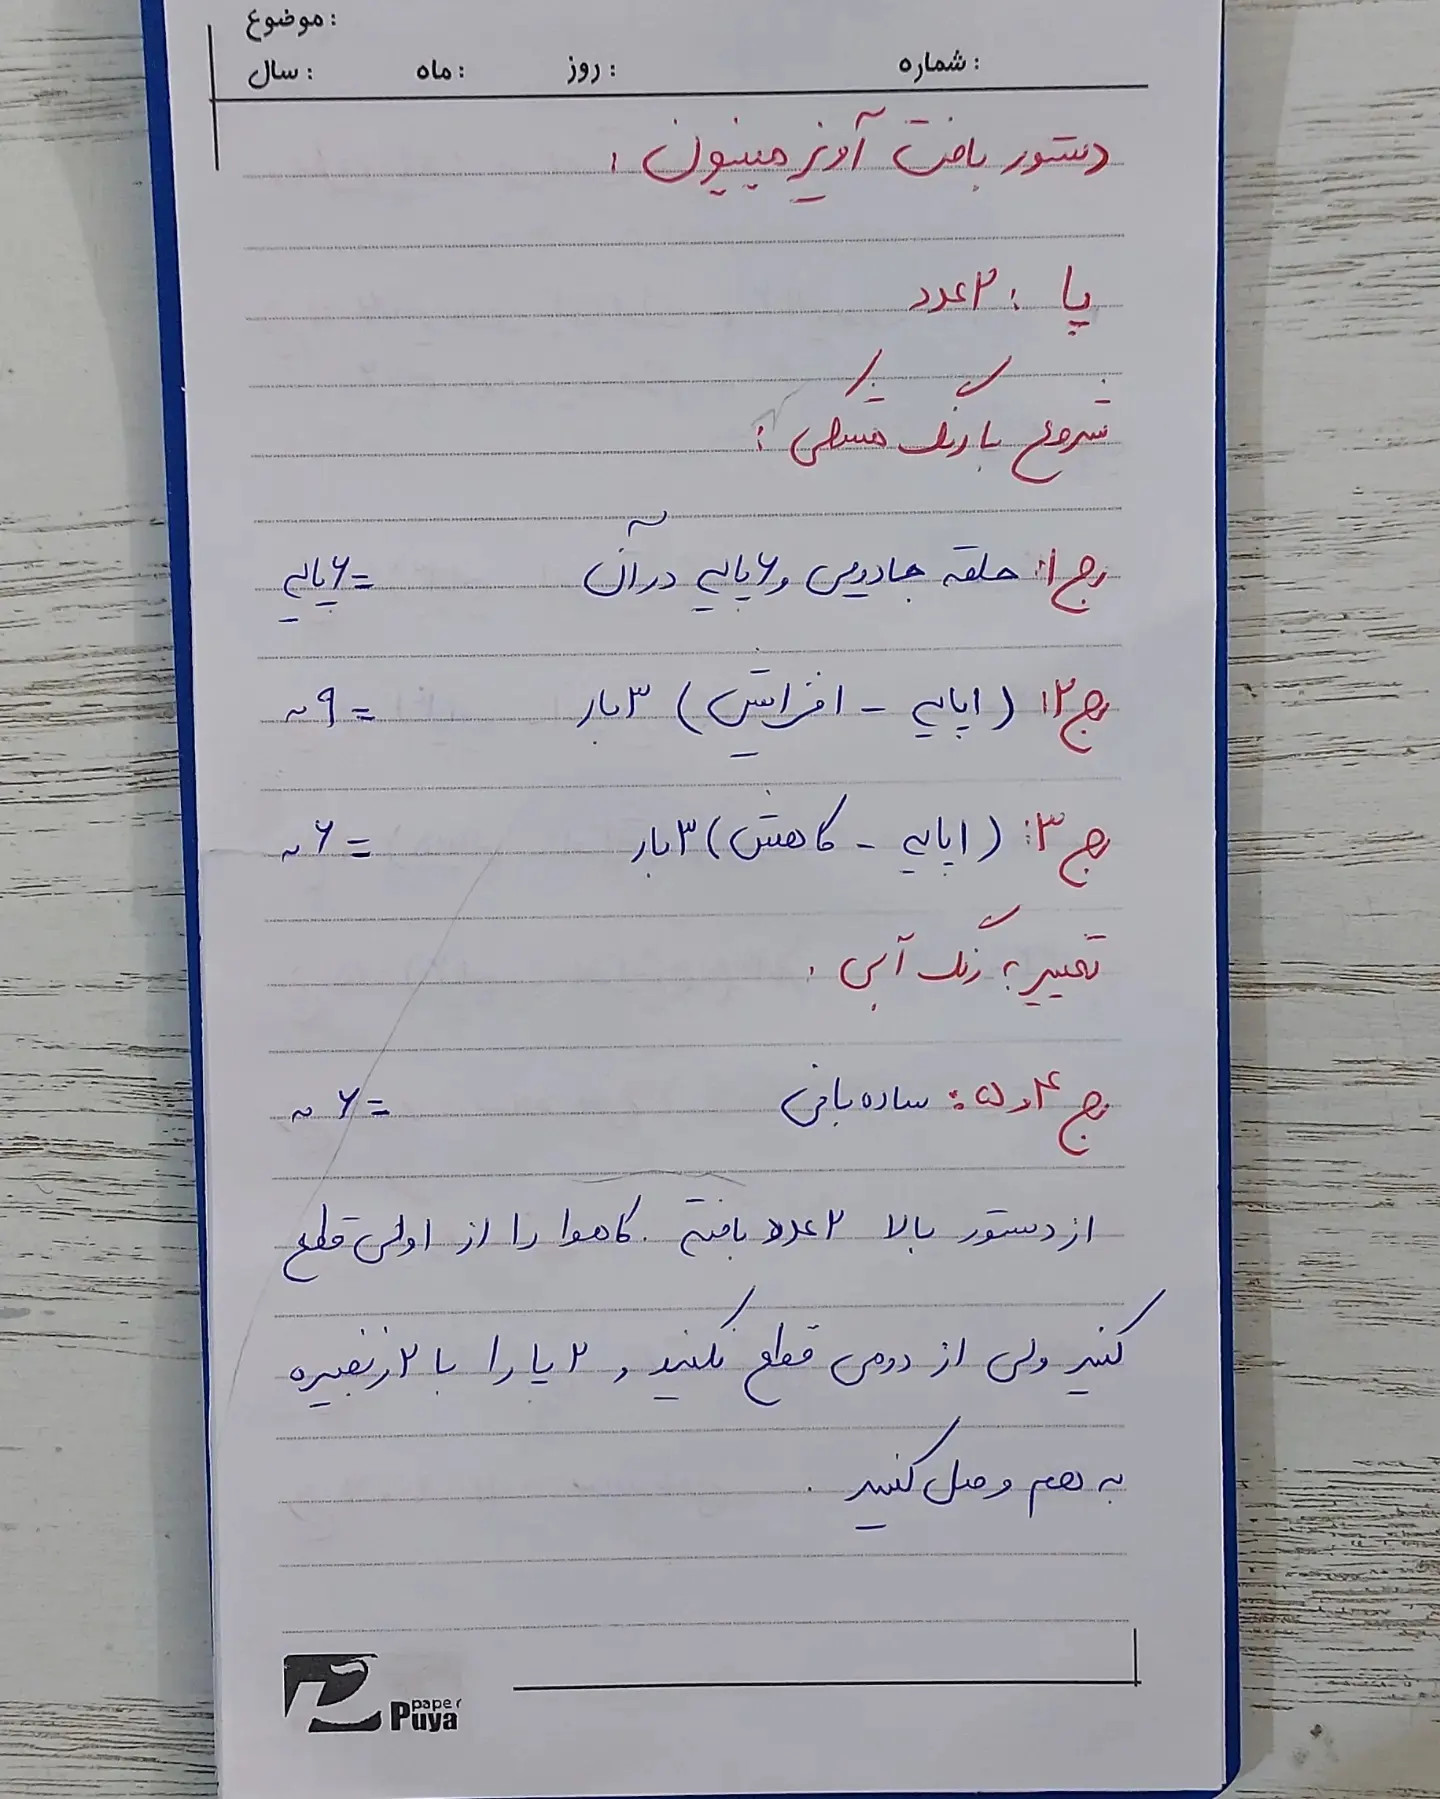 موضوع :
شماره : روز : ماه : سال :
دستور بافت آویز مینیون :
پا : ۲ عدد
شروع با رنگ مشکی :
رج ۱: حلقه جادویی و ۶ پایه در آن = ۶ پایه
رج ۲: ( ۱ پایه - افزایش ) ۳ بار = ۹ ~
رج ۳: ( ۱ پایه - کاهش ) ۳ بار = ۶ ~
تغییر به رنگ آبی :
رج ۴ و ۵ : ساده بافی = ۶ ~
از دستور بالا ۲ عدد بافته . کاموا را از اولی قطع
کنید ولی از دومی قطع نکنید و ۲ پا را با ۲ زنجیره
به هم وصل کنید .
paper
Puya